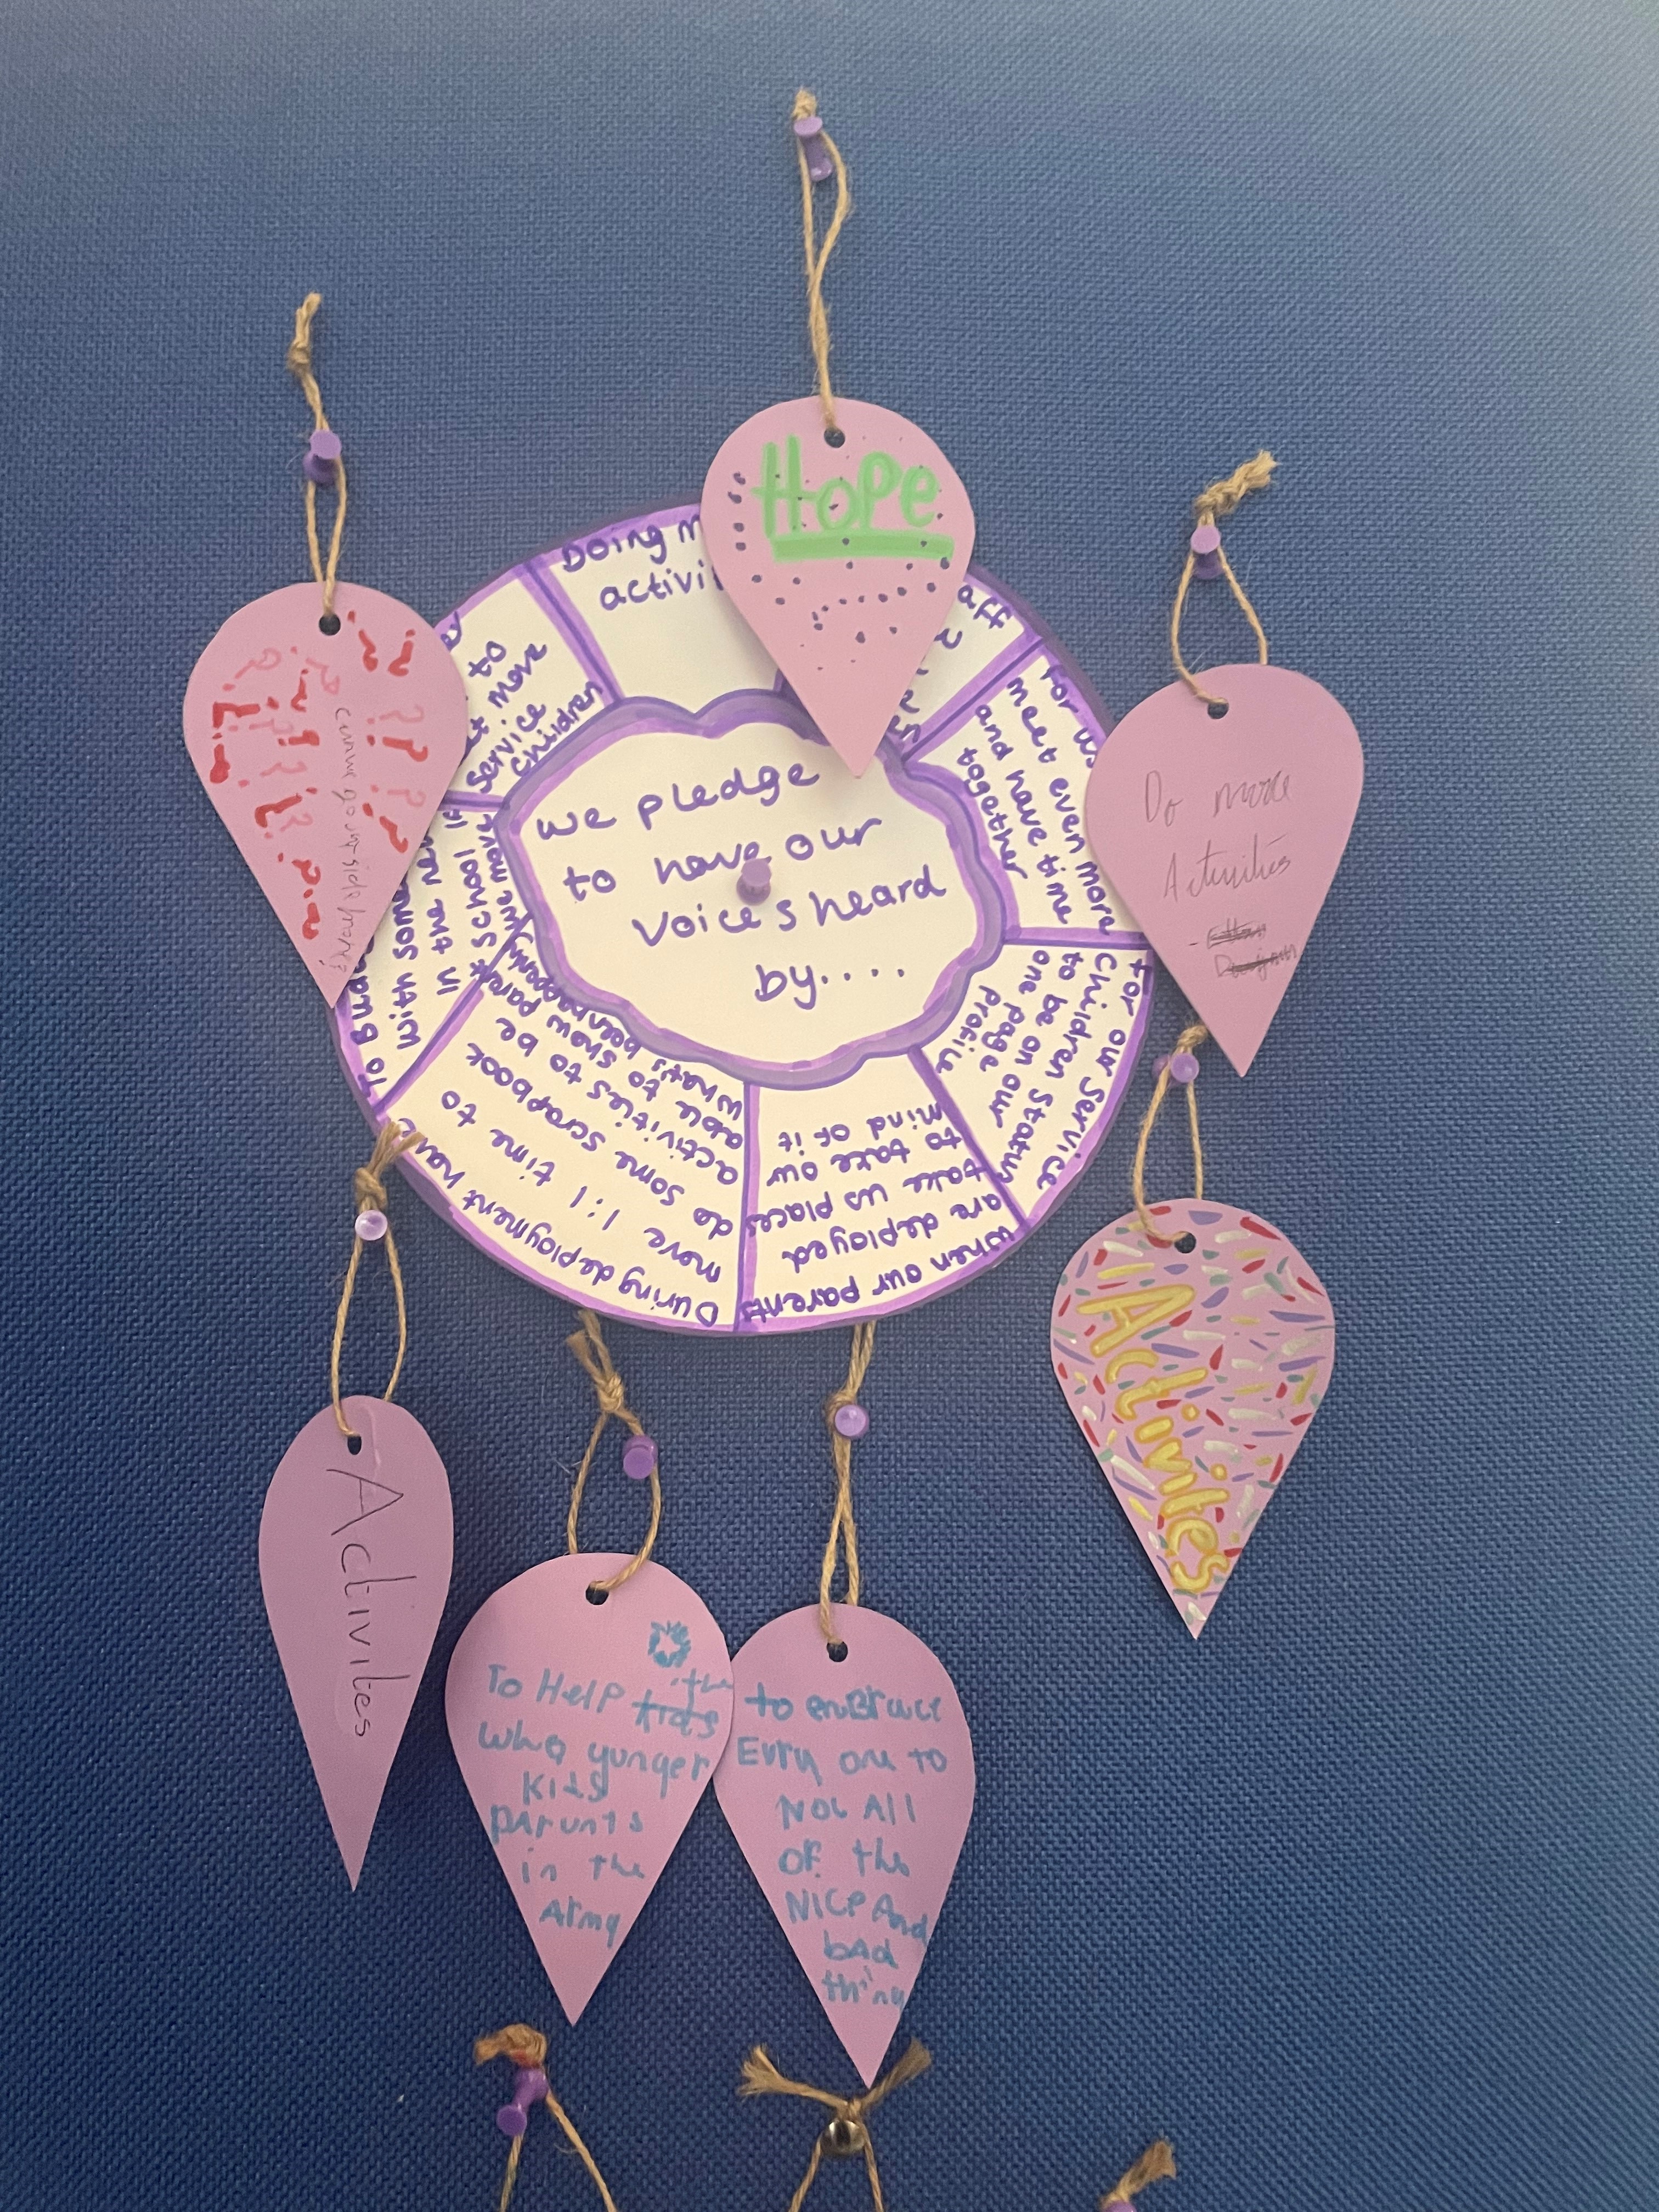 Hope
We pledge
to have our
voices heard
by....
Doing m
activi
aff
For us
meet even more
and have time
together
For our Service
Children Status
to be on our
one page
profile
When our parents
are deployed
take us places
to take our
mind of it
During deployment have
more 1:1 time to
do some scrapbook
activities to be
able to show parent
what's been happening
To
with
in the new
school if
we move
to
more
Service
Children
Do more
Activities
Activities
Activites
To Help the
kids
who yunger
Kids
parunts
in the
Army
to embrace
Evry one to
Not All
of the
NICe And
bad
thiny